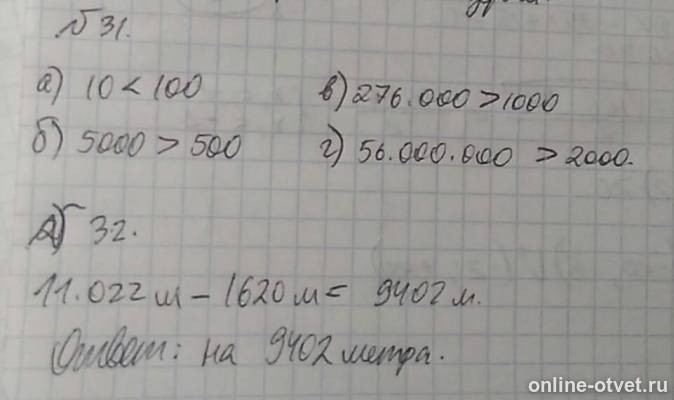 № 31.
а) 10 < 100
в) 276.000 > 1000
б) 5000 > 500
г) 56.000.000 > 2000.
№ 32.
11.022 м - 1620 м = 9402 м.
Ответ: на 9402 метра.
online-otvet.ru